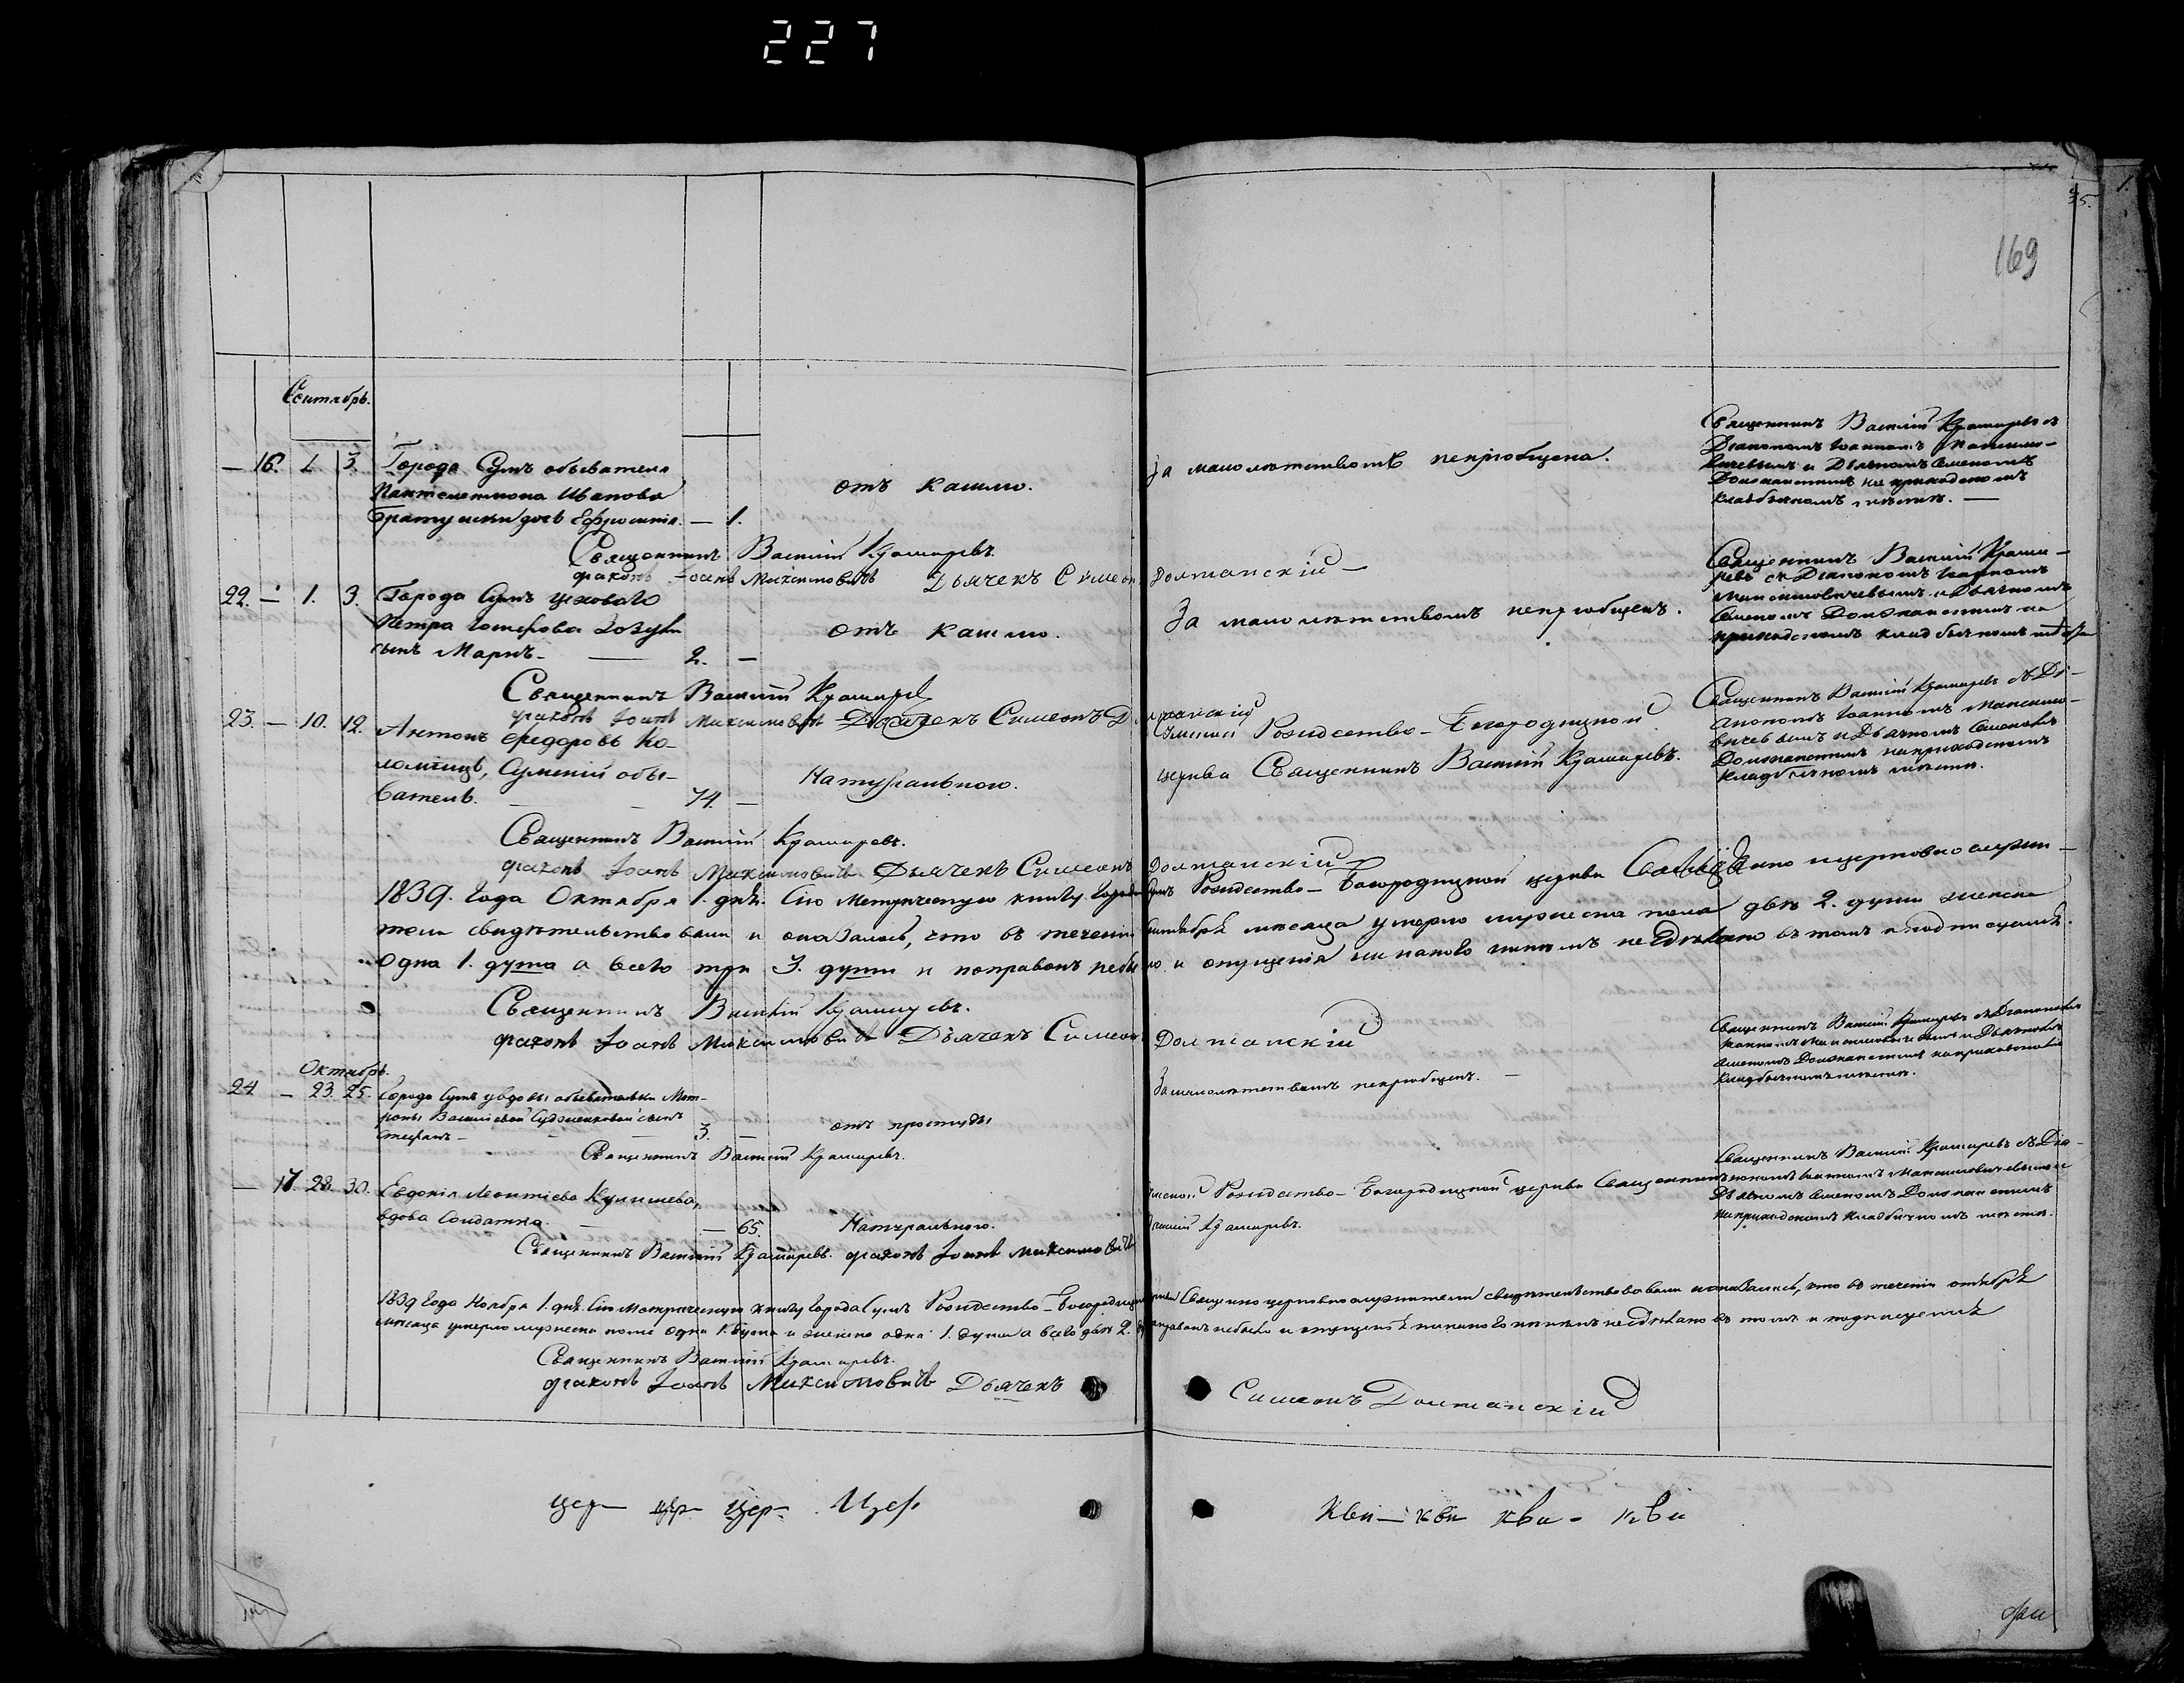 227
35.
1.
169
Сентябрь.
— 16. 1. 3. Города Сумъ обывателя
Пантелеимона Иванова
дочь Ефросинія. — 1.
отъ кашлю.
За малолѣтствомъ непріобщена.
Священникъ Василій Крамаревъ съ
Діакономъ Іоанномъ Максимо-
вичевымъ и Дьячкомъ Симеономъ
Должанскимъ на приходскомъ
кладбичномъ мѣстѣ. —
Священникъ Василій Крамаревъ
Діаконъ Іоаннъ Максимовичъ Дьячекъ Симеонъ Должанскій —
22. — 1. 3. Города Сумъ цеховаго
Петра Іосифова Зозули
сынъ Маркъ — 2. —
отъ кашлю.
За малолѣтствомъ непріобщенъ.
Священникъ Василій Крама-
ревъ съ Діакономъ Іоанномъ
Максимовичевымъ и Дьячкомъ
Симеономъ Должанскимъ на
приходскомъ кладбичномъ мѣстѣ
Священникъ Василій Крамаревъ
Діаконъ Іоаннъ Максимовичъ Дьячекъ Симеонъ Должанскій
23. — 10. 12. Антонъ Ѳедоровъ Ко-
ломіецъ, Сумскій обы-
ватель. — — 74. —
Натуральною.
Сумской Рождество-Богородицкой
церкви Священникъ Василій Крамаревъ.
Священникъ Василій Крамаревъ съ Ді-
акономъ Іоанномъ Максимо-
вичевымъ и Дьячкомъ Симеономъ
Должанскимъ на приходскомъ
кладбичномъ мѣстѣ.
Священникъ Василій Крамаревъ.
Діаконъ Іоаннъ Максимовичъ Дьячекъ Симеонъ Должанскій
1839. Года Октября 1. дня. Сію Метрическую книгу Города Сумъ Рождество-Богородицкой церкви Священно и церковнослужи-
тели свидѣтельствовали и оказалось, что въ теченіи Сентября мѣсяца умерло мужеска пола двѣ 2. души женска
одна 1. душа а всего три 3. души и поправокъ небыло и опущенія никакого никимъ не сдѣлано въ томъ и подписуемся.
Священникъ Василій Крамаревъ.
Діаконъ Іоаннъ Максимовичъ Дьячекъ Симеонъ Должанскій
Октябрь.
24 — 23. 25. Города Сумъ у вдовы обывательки Мат-
роны Васильевой сынъ
Стефанъ — — — 3. —
отъ простуды
За малолѣтствомъ непріобщенъ. —
Священникъ Василій Крамаревъ съ Діакономъ
Іоанномъ Максимовичевымъ и Дьячкомъ
Симеономъ Должанскимъ на приходскомъ
кладбичномъ мѣстѣ.
Священникъ Василій Крамаревъ.
— 17. 28. 30. Евдокія Леонтіева Кулишева,
вдова Солдатка. — — 65.
Натурального.
Сумской Рождество-Богородицкой церкви Священникъ
Василій Крамаревъ.
Священникъ Василій Крамаревъ съ Діа-
кономъ Іоанномъ Максимовичевымъ и
Дьячкомъ Симеономъ Должанскимъ
на приходскомъ кладбичномъ мѣстѣ.
Священникъ Василій Крамаревъ. Діаконъ Іоаннъ Максимовичъ
1839 Года Ноября 1. дня. Сію Метрическую книгу Города Сумъ Рождество-Богородицкой церкви Священно церковнослужители свидѣтельствовали и оказалось, что въ теченіи октября
мѣсяца умерло мужеска пола одна 1. душа и женска одна 1. душа а всего двѣ 2. поправокъ небыло и опущенія никакого никимъ несдѣлано въ томъ и подписуемся
Священникъ Василій Крамаревъ.
Діаконъ Іоаннъ Максимовичъ Дьячекъ Симеонъ Должанскій
цер— цер— цер— Цер.
кви— кви кви— кви